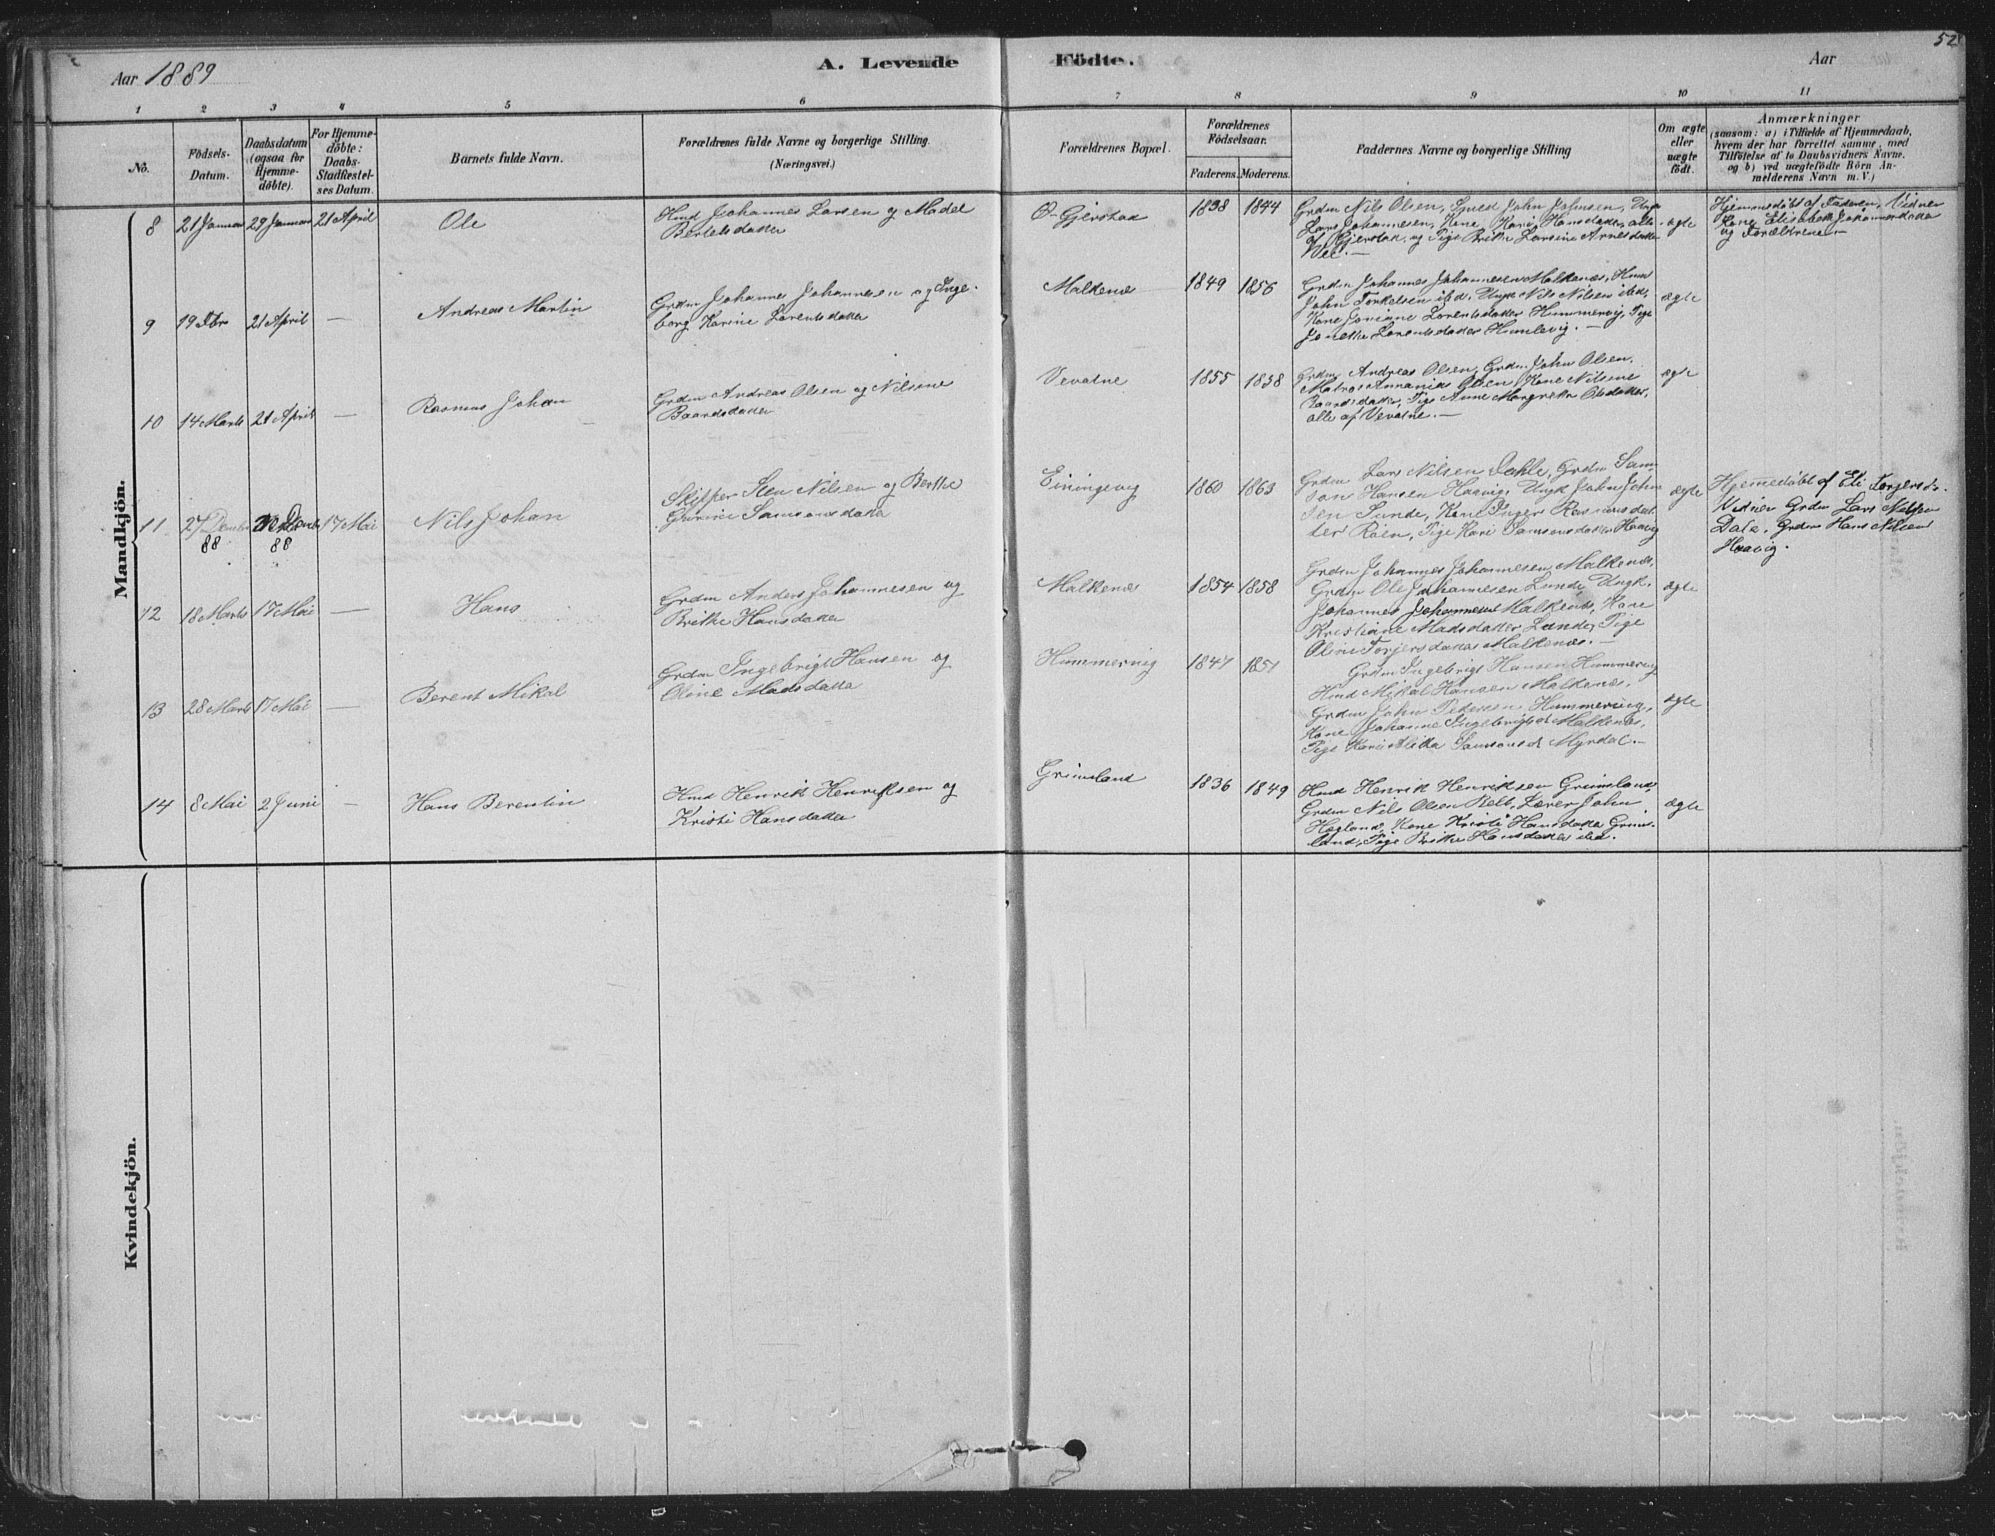 52
Aar 1889
A. Levende Födte.
Aar
1 2 3 4 5 6 7 8 9 10 11
No.
Födsels-
Datum.
Daabsdatum
(ogsaa for
Hjemme-
döbte).
For Hjemme-
döbte:
Daabs-
Stadfæstel-
ses Datum.
Barnets fulde Navn.
Forældrenes fulde Navne og borgerlige Stilling.
(Næringsvei.)
Forældrenes Bopæl.
Forældrenes
Fødselsaar.
Faderens. Moderens.
Faddernes Navne og borgerlige Stilling
Om ægte
eller
uægte
födt.
Anmærkninger
(saasom: a) i Tilfælde af Hjemmedaab,
hvem der har forrettet samme, med
Tilføielse af to Daabsvidners Navne,
og b) ved uægtefödte Börn An-
melderens Navn m. V.)
Mandkjön.
8 21 Januar 29 Januar 21 April
Ole
Hmd Johannes Larsen og Madel
Bertelsdatter
Ø-Gjerstad
1838 1844
Grdm Nils Olsen, John Johnsen, Ungk
Lars Johannesen, Kone Kari Hansdatter, alle
Gjerstad, og Pige Brithe Larsine Arnesdatter
ægte
Hjemmedöbt af Faderen, Vidner
Kone Elisabeth Johannesdatter
og Forældrene.-
9 19 Fbr 21 April —
Andreas Martin
Grdm Johannes Johannesen og Inge-
borg Karine Lorentsdatter
Malkenæs
1849 1856
Grdm Johannes Johannesen Malkenæs, Hmd
John Torkelsen ibd, Ungk Nils Nilsen ibd,
Kone Lorentsdatter Hummervig, Pige
Lorentsdatter Humlevig.-
ægte
10 14 Marts 21 April —
Rasmus Johan
Grdm Andreas Olsen og Nilsine
Baardsdatter
Vevatne
1855 1858
Grdm Andreas Olsen, Grdm John Olsen,
Matros Annanias Olsen, Kone Nilsine
Baardsdatter, Pige Anne Margrethe Olsdatter,
alle af Vevatne.-
ægte
11 27 Decmbr 88 88 17 Mai
Nils Johan
Skipper Sten Nilsen og Berthe
Gurine Samsonsdatter
Einingevig
1860 1863
Grdm Lars Nilsen Dahle, Grdm Sam-
son Hansen Haavig, Ungk John John-
sen Sunde, Kone Inger Rasmusdat-
ter Røen, Pige Kari Samsonsdatter Haavig
ægte
Hjemmedöbt af Eli Torjersd.
Vidner Grdm Lars Nilsen
Dale, Grdm Hans Nilsen
Haavig.
12 18 Marts 17 Mai —
Hans
Grdm Anders Johannesen og
Brithe Hansdatter
Malkenæs
1854 1858
Grdm Johannes Johannesen Malkenæs,
Grdm Ole Johannesen Lunde, Ungk.
Johannes Johannesen Malkenæs, Kone
Kristiane Madsdatter Lunde, Pige
Oline Torjersdatter Malkenæs.-
ægte
13 28 Marts 17 Mai —
Berent Mikal
Grdm Ingebrigt Hansen og
Oline Madsdatter
Hummervig
1847 1851
Grdm Ingebrigt Hansen Hummervig
Hmd Mikal Hansen Malkenæs,
Grdm John Pedersen Hummervig,
Kone Johanne Ingebrigtsd Malkenæs,
Pige Kari Alitta Samsonsd Myrdal.-
ægte
14 8 Mai 2 Juni —
Hans Berentin
Hmd Henrik Henriksen og
Kristi Hansdatter
Grimsland
1836 1849
Hmd Henrik Henriksen Grimsland,
Grdm Nils Olsen Belt, Lærer John
Hagland, Kone Kristi Hansdatter Grims-
land, Pige Brithe Hansdatter ibd.
ægte
Kvindekjön.